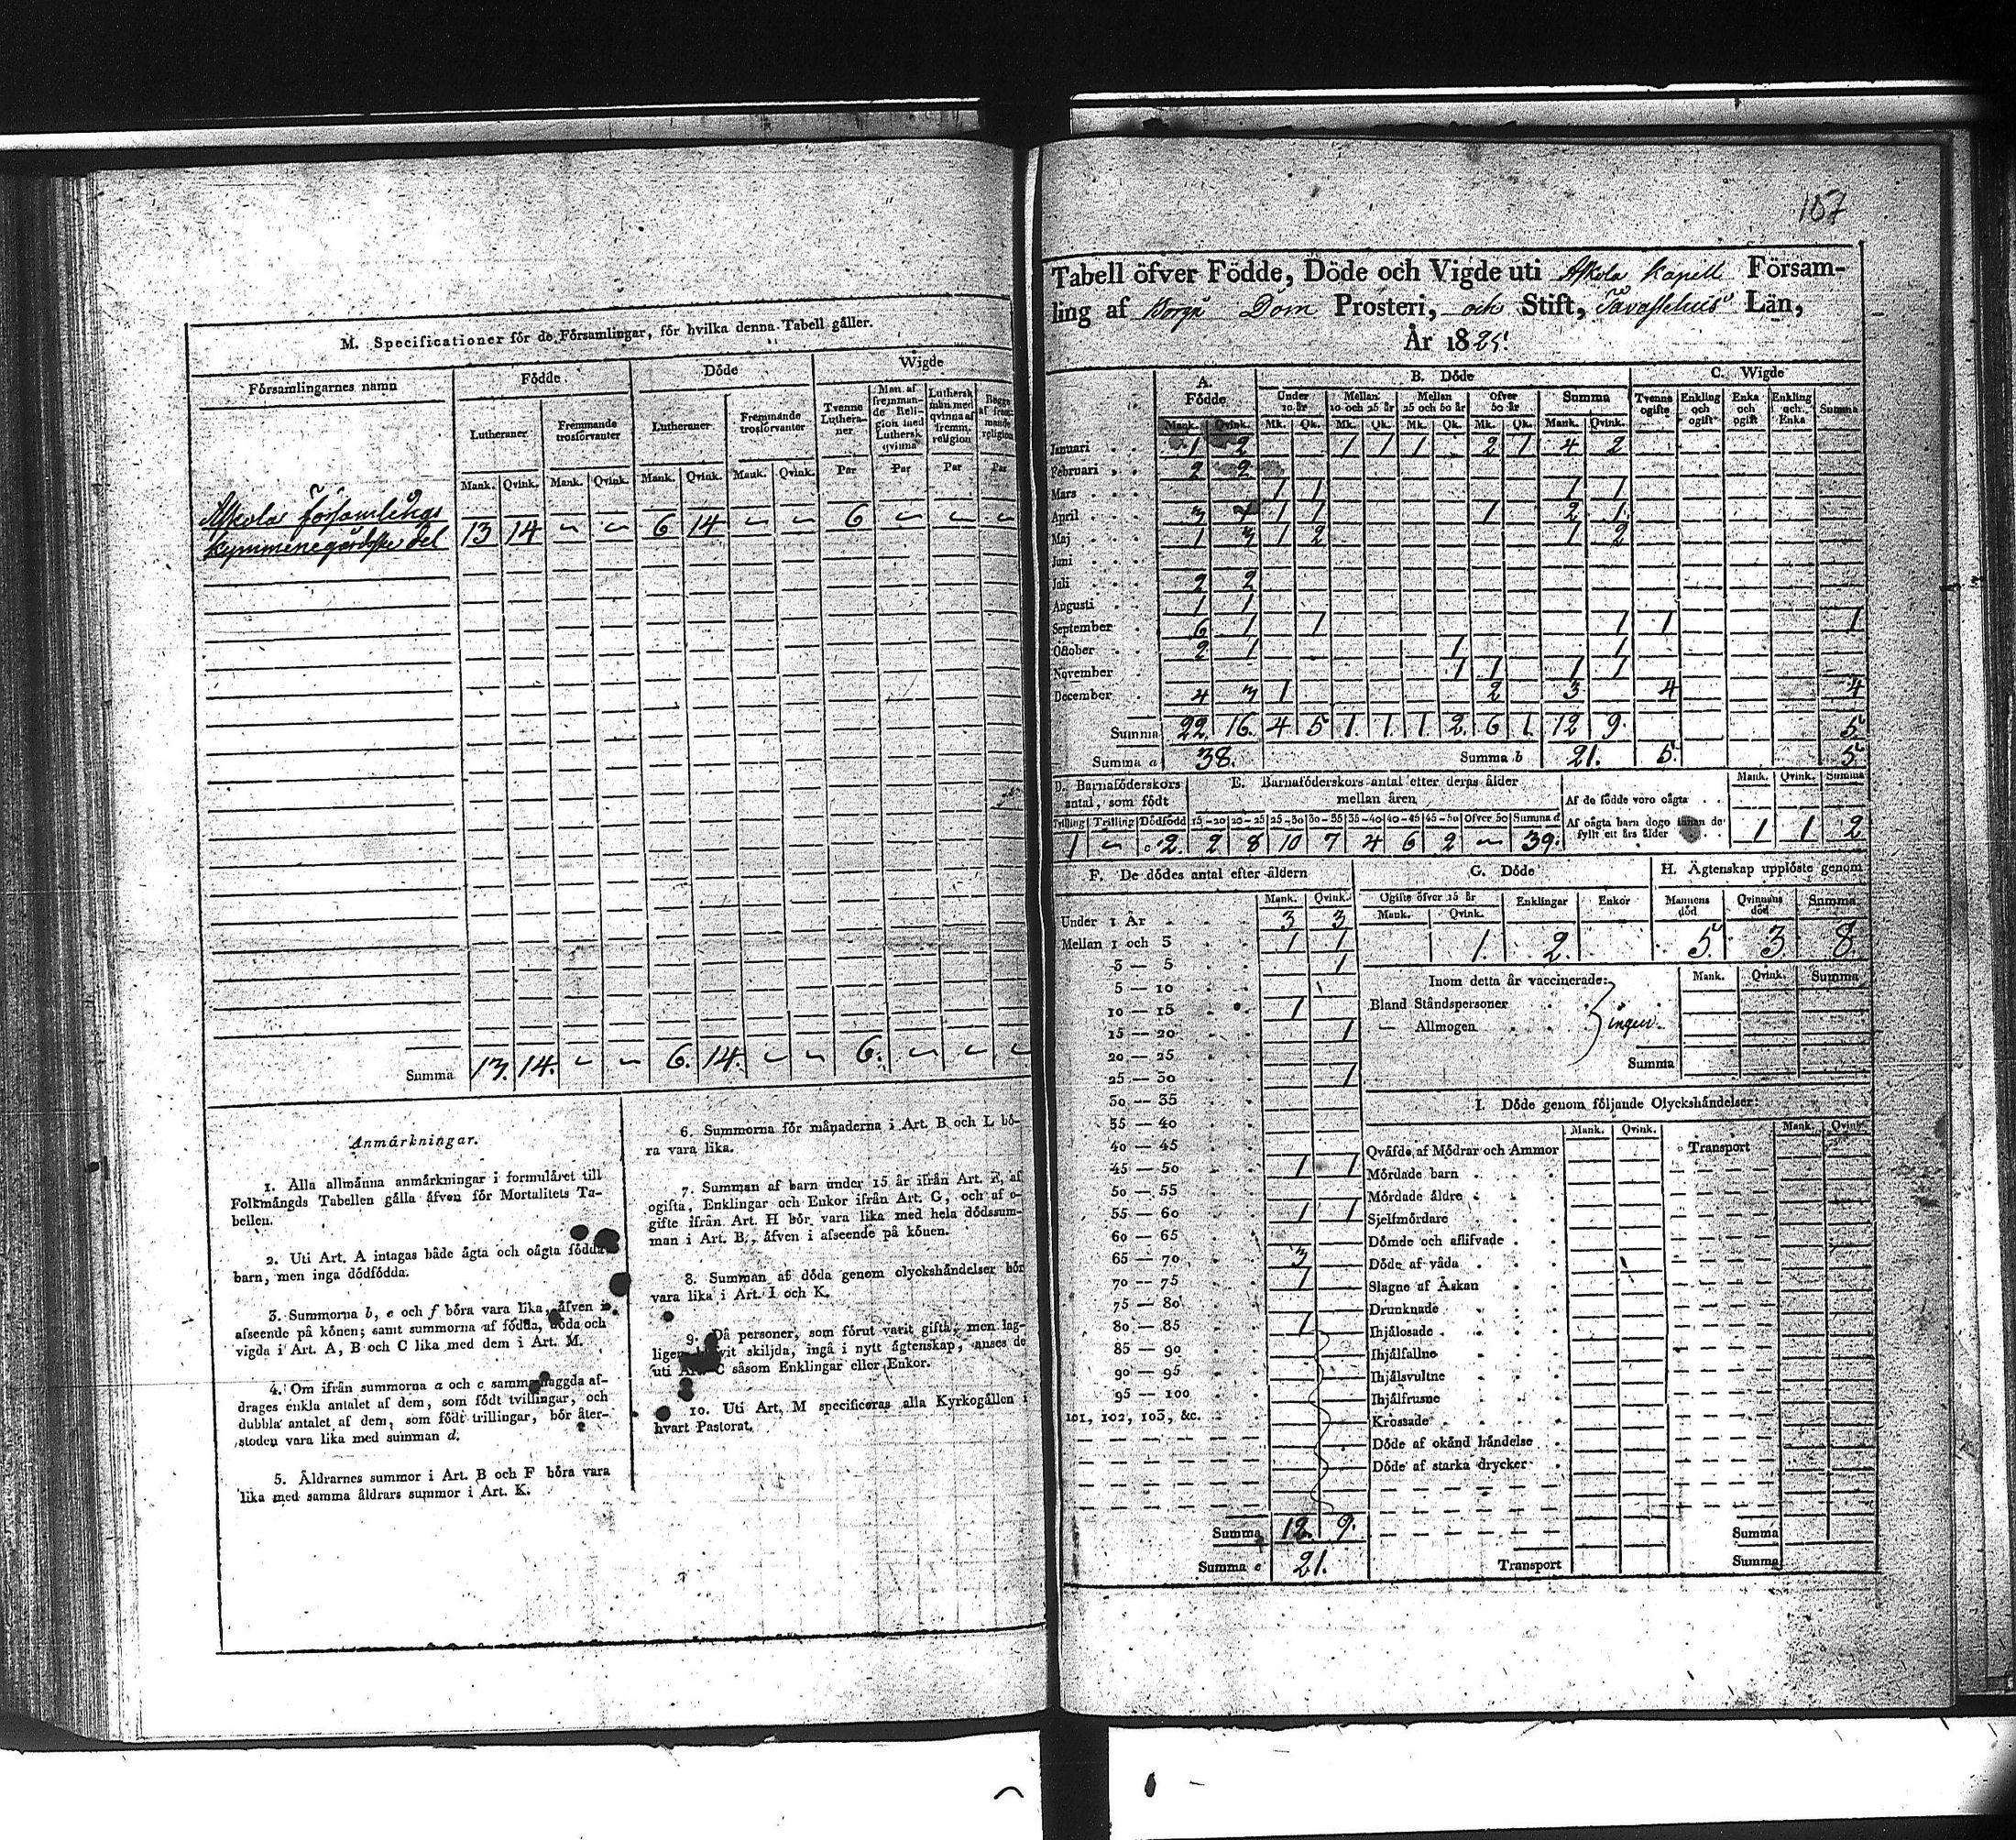 M. Specificationer för de Församlingar, för hvilka denna Tabell gäller.
Församlingarnes namn
Födde
Döde
Wigde
Lutheraner
Fremmande trosförvanter
Lutheraner
Fremmande trosförvanter
Tvenne Lutheraner
Man af fremmande Religion med Luthersk qvinna
Luthersk man med qvinna af fremm. religion
Begge af fremmande religion
Mank. Qvink. Mank. Qvink. Mank. Qvink. Mank. Qvink. Par Par Par Par
Askola församlings
Kymmenegårdske del 13 14 — — 6 14 — — 6 — — —
Summa 13. 14. — — 6. 14. — — 6. — — —
Anmärkningar.
1. Alla allmänna anmärkningar i formuläret till
Folkmängds Tabellen gälla äfven för Mortalitets Ta-
bellen.
2. Uti Art. A intagas både ägta och oägta födda
barn, men inga dödfödda.
3. Summorna b, e och f böra vara lika, äfven i
afseende på könen; samt summorna af födda, döda och
vigda i Art. A, B och C lika med dem i Art. M.
4. Om ifrån summorna a och c sammanlaggda af-
drages enkla antalet af dem, som födt tvillingar, och
dubbla antalet af dem, som födt trillingar, bör åter-
stoden vara lika med summan d.
5. Äldrarnes summor i Art. B och F böra vara
lika med samma åldrars summor i Art. K.
6. Summorna för månaderna i Art. B och L bö-
ra vara lika.
7. Summan af barn under 15 år ifrån Art. F, af
ogifta, Enklingar och Enkor ifrån Art. G, och af o-
gifte ifrån Art. H bör vara lika med hela dödssum-
man i Art. B., äfven i afseende på könen.
8. Summan af döda genom olyckshändelser bör
vara lika i Art. I och K.
9. Då personer, som förut varit gifta, men lag-
ligen blifvit skiljda, ingå i nytt ägtenskap, anses de
uti Art. C såsom Enklingar eller Enkor.
10. Uti Art. M specificeras alla Kyrkogällen i
hvart Pastorat.
157
Tabell öfver Födde, Döde och Vigde uti Askola Kapell Försam-
ling af Borgå Dom Prosteri, och Stift, Tavastehus Län,
År 1825.
A. Födde
B. Döde
C. Wigde
Under 10 år
Mellan 10 och 25 år
Mellan 25 och 50 år
Öfver 50 år
Summa
Tvenne ogifte
Enkling och ogift
Enka och ogift
Enkling och Enka
Summa
Mank. Qvink. Mk. Qk. Mk. Qk. Mk. Qk. Mk. Qk. Mank. Qvink.
Januari 1 2 1 1 1 2 1 4 2
Februari 2 2
Mars 1 1 1 1
April 3 1 1 1 2 1
Maj 1 3 1 2 1 2
Juni
Juli 2 2
Augusti 1 1
September 6 1 1 1 1 1
October 2 1 1 1
November 1 1 1 1
December 4 3 1 2 3 4 4
Summa 22. 16. 4 5 1. 1. 1. 2. 6 1. 12 9. 5.
Summa a 38. Summa b 21. 5. 5
D. Barnaföderskors antal, som födt
Tvilling Trilling Dödfödd
1 — 2.
E. Barnaföderskors antal efter deras ålder
mellan åren
15—20 20—25 25—30 30—35 35—40 40—45 45—50 Öfver 50 Summa d
2 8 10 7 4 6 2 — 39.
Mank. Qvink. Summa
Af de födde voro oägta
Af oägta barn dogo innan de
fyllt ett års ålder 1 1 2
F. De dödes antal efter åldern
Mank. Qvink.
Under 1 År 3 3
Mellan 1 och 3 1 1
3 — 5 1
5 — 10
10 — 15 1
15 — 20 1
20 — 25
25 — 30 1
30 — 35
35 — 40
40 — 45
45 — 50 1 1
50 — 55
55 — 60 1 1
60 — 65
65 — 70 3
70 — 75 1
75 — 80
80 — 85 1
85 — 90
90 — 95
95 — 100
101, 102, 103, &c.
Summa 12. 9.
Summa e 21.
G. Döde
Ogifte öfver 15 år
Mank. Qvink.
Enklingar
Enkor
1. 2.
H. Ägtenskap upplöste genom
Mannens död
Qvinnans död
Summa
5. 3 8.
Inom detta år vaccinerade:
Mank. Qvink. Summa
Bland Ståndspersoner
— Allmogen
ingen
Summa
I. Döde genom följande Olyckshändelser:
Mank. Qvink. Mank. Qvink.
Transport
Qväfde af Mödrar och Ammor
Mördade barn
Mördade äldre
Sjelfmördare
Dömde och aflifvade
Döde af våda
Slagne af Åskan
Drunknade
Ihjälosade
Ihjälfallne
Ihjälsvultne
Ihjälfrusne
Krossade
Döde af okänd händelse
Döde af starka drycker
Summa
Transport
Summa